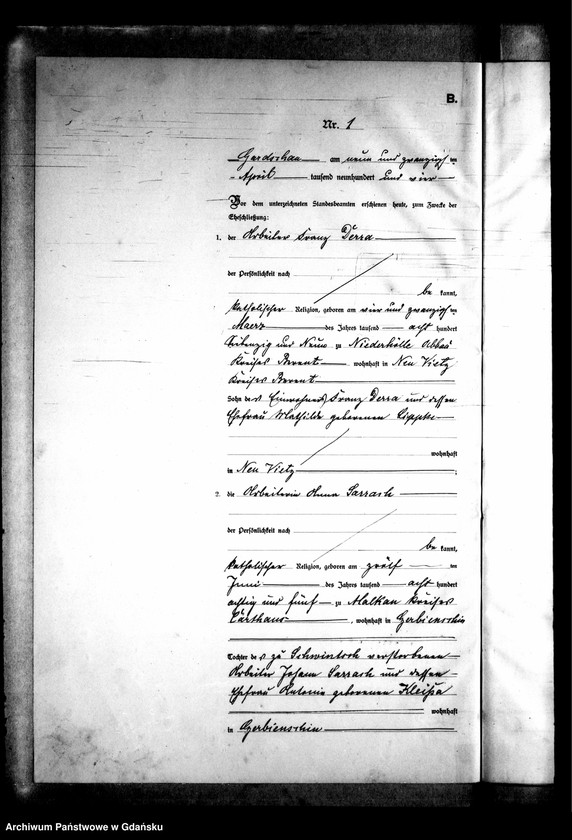 B.
Nr. 1
Gardschau am neun und zwanzigsten
April tausend neunhundert und vier
Vor dem unterzeichneten Standesbeamten erschienen heute, zum Zwecke der
Eheschließung:
1. der Arbeiter Franz Derra
der Persönlichkeit nach
be kannt,
katholischer Religion, geboren am vier und zwanzigsten
Maerz des Jahres tausend acht hundert
siebenzig und neun zu Niederhütte Abbau
Kreises Berent, wohnhaft in Neu Vietz
Kreises Berent
Sohn des Einwohners Franz Derra und dessen
Ehefrau Mathilde geborenen Lippke
wohnhaft
in Neu Vietz ;
2. die Arbeiterin Anna Sarrach
der Persönlichkeit nach
be kannt,
katholischer Religion, geboren am zwölf ten
Juni des Jahres tausend acht hundert
achtzig und fünf zu Malkau Kreises
Carthaus, wohnhaft in Gerbienschin
Tochter des zu Schwintsch verstorbenen
Arbeiter Johann Sarrach und dessen
Ehefrau Antonie geborenen
wohnhaft
in Gerbienschin
Archiwum Państwowe w Gdańsku